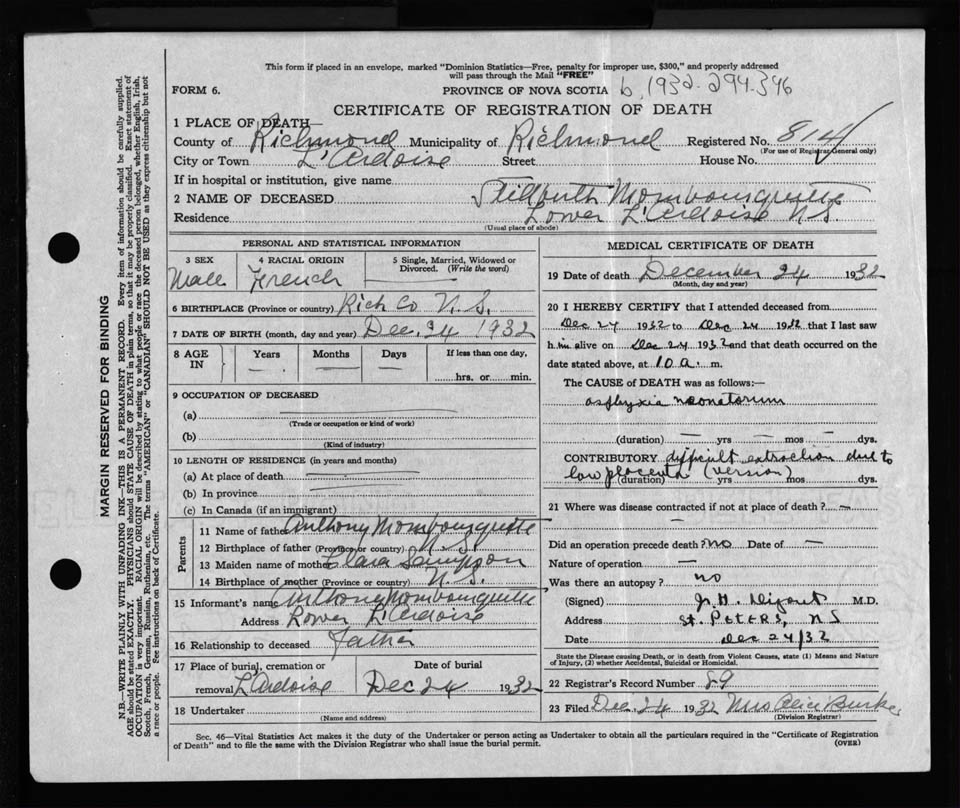 This form if placed in an envelope, marked "Dominion Statistics—Free, penalty for improper use, $300," and properly addressed
will pass through the Mail "FREE"
FORM 6.
PROVINCE OF NOVA SCOTIA b, 1932-294.346
CERTIFICATE OF REGISTRATION OF DEATH
1 PLACE OF DEATH—
County of Richmond Municipality of Richmond Registered No. 814
(For use of Registrar General only)
City or Town L'Ardoise Street House No.
If in hospital or institution, give name
2 NAME OF DECEASED Stillbirth Mombourquette
Residence Lower L'Ardoise N S
(Usual place of abode)
PERSONAL AND STATISTICAL INFORMATION
3 SEX Male
4 RACIAL ORIGIN French
5 Single, Married, Widowed or Divorced. (Write the word)
6 BIRTHPLACE (Province or country) Rich Co N. S.
7 DATE OF BIRTH (month, day and year) Dec. 24 1932
8 AGE IN Years — Months — Days — If less than one day,
hrs. or min.
9 OCCUPATION OF DECEASED
(a)
(Trade or occupation or kind of work)
(b)
(Kind of industry)
10 LENGTH OF RESIDENCE (in years and months)
(a) At place of death
(b) In province
(c) In Canada (if an immigrant)
Parents
11 Name of father Anthony Mombourquette
12 Birthplace of father (Province or country) N. S.
13 Maiden name of mother Clara Sampson
14 Birthplace of mother (Province or country) N. S.
15 Informant's name Anthony Mombourquette
Address Lower L'Ardoise
16 Relationship to deceased Father
17 Place of burial, cremation or removal L'Ardoise
Date of burial Dec 24 1932
18 Undertaker
(Name and address)
MEDICAL CERTIFICATE OF DEATH
19 Date of death December 24 1932
(Month, day and year)
20 I HEREBY CERTIFY that I attended deceased from
Dec 24 1932 to Dec 24 1932 that I last saw
h im alive on Dec 24 1932 and that death occurred on the
date stated above, at 10 a. m.
The CAUSE of DEATH was as follows:—
asphyxia neonatorum
(duration) — yrs — mos — dys.
CONTRIBUTORY difficult extraction due to
low placenta (version)
(duration) yrs mos dys.
21 Where was disease contracted if not at place of death? —
Did an operation precede death? no Date of —
Nature of operation —
Was there an autopsy? no
(Signed) M.D.
Address St. Peters, N S
Date Dec 24/32
State the Disease causing Death, or in death from Violent Causes, state (1) Means and Nature
of Injury, (2) whether Accidental, Suicidal or Homicidal.
22 Registrar's Record Number 89
23 Filed Dec. 24 1932 Mrs Alice Burke
(Division Registrar)
Sec. 46—Vital Statistics Act makes it the duty of the Undertaker or person acting as Undertaker to obtain all the particulars required in the "Certificate of Registration
of Death" and to file the same with the Division Registrar who shall issue the burial permit.
(OVER)
MARGIN RESERVED FOR BINDING
N.B.—WRITE PLAINLY WITH UNFADING INK—THIS IS A PERMANENT RECORD. Every item of information should be carefully supplied.
AGE should be stated EXACTLY. PHYSICIANS should STATE CAUSE OF DEATH in plain terms, so that it may be properly classified. Exact statement of
OCCUPATION is very important. RACIAL ORIGIN will be described by stating to what people or race the deceased person belonged, whether English, Irish,
Scotch, French, German, Russian, Ruthenian, etc. The terms "AMERICAN" or "CANADIAN" SHOULD NOT BE USED as they express citizenship but not
a race or people. Fee instructions on back of Certificate.